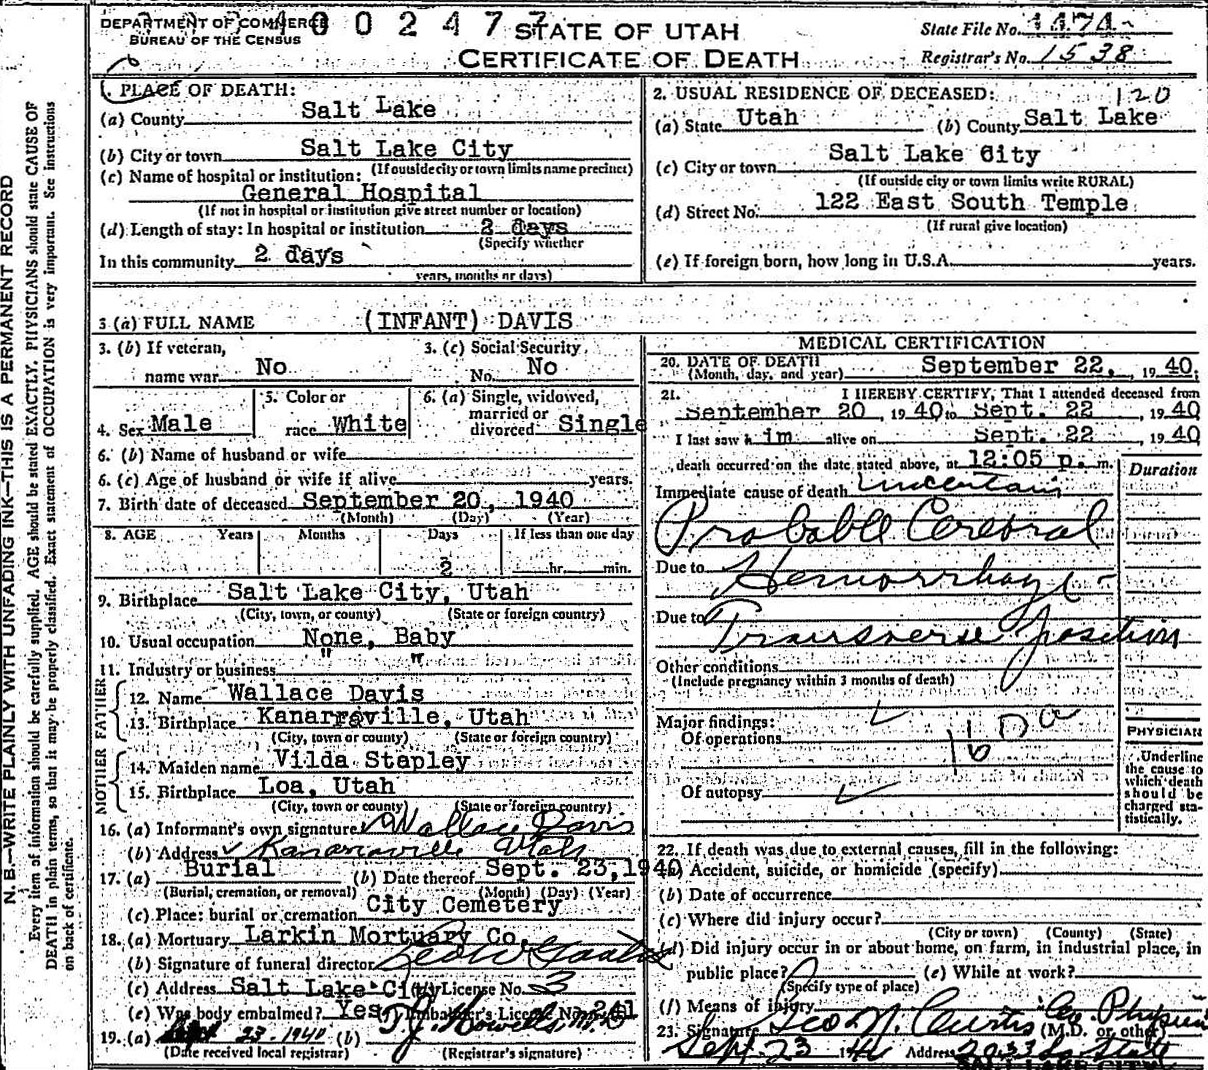 DEPARTMENT OF COMMERCE
BUREAU OF THE CENSUS
4 0 0 2 4 7 7
STATE OF UTAH
CERTIFICATE OF DEATH
State File No. 1474
Registrar's No. 1538
1. PLACE OF DEATH:
(a) County Salt Lake
(b) City or town Salt Lake City
(If outside city or town limits name precinct)
(c) Name of hospital or institution:
General Hospital
(If not in hospital or institution give street number or location)
(d) Length of stay: In hospital or institution 2 days
(Specify whether
In this community 2 days
years, months or days)
2. USUAL RESIDENCE OF DECEASED: 120
(a) State Utah (b) County Salt Lake
(c) City or town Salt Lake City
(If outside city or town limits write RURAL)
(d) Street No. 122 East South Temple
(If rural give location)
(e) If foreign born, how long in U.S.A. years.
3 (a) FULL NAME (INFANT) DAVIS
3. (b) If veteran, name war No
3. (c) Social Security No. No
4. Sex Male
5. Color or race White
6. (a) Single, widowed, married or divorced Single
6. (b) Name of husband or wife
6. (c) Age of husband or wife if alive years.
7. Birth date of deceased September 20, 1940
(Month) (Day) (Year)
8. AGE Years Months Days If less than one day
2 hr. min.
9. Birthplace Salt Lake City, Utah
(City, town, or county) (State or foreign country)
10. Usual occupation None, Baby
11. Industry or business " "
FATHER
12. Name Wallace Davis
13. Birthplace Kanarraville, Utah
(City, town or county) (State or foreign country)
MOTHER
14. Maiden name Vilda Stapley
15. Birthplace Loa, Utah
(City, town or county) (State or foreign country)
16. (a) Informant's own signature Wallace Davis
(b) Address Kanarraville Utah
17. (a) Burial (b) Date thereof Sept. 23, 1940
(Burial, cremation, or removal) (Month) (Day) (Year)
(c) Place: burial or cremation City Cemetery
18. (a) Mortuary Larkin Mortuary Co.
(b) Signature of funeral director
(c) Address Salt Lake City License No. 3
(e) Was body embalmed? Yes Embalmer's License No. 241
19. (a) Sept 23 1940 (b) T. J. Howells M.D.
(Date received local registrar) (Registrar's signature)
MEDICAL CERTIFICATION
20. DATE OF DEATH
(Month, day, and year) September 22, 1940;
21. I HEREBY CERTIFY, That I attended deceased from
September 20, 1940 to Sept. 22, 1940
I last saw him alive on Sept. 22, 1940
death occurred on the date stated above, at 12:05 p. m.
Duration
Immediate cause of death Uncertain
Probable Cerebral
Due to Hemorrhage -
Due to Transverse position
Other conditions
(Include pregnancy within 3 months of death)
Major findings:
Of operations
Of autopsy
PHYSICIAN
Underline the cause to which death should be charged statistically.
22. If death was due to external causes, fill in the following:
(a) Accident, suicide, or homicide (specify)
(b) Date of occurrence
(c) Where did injury occur?
(City or town) (County) (State)
(d) Did injury occur in or about home, on farm, in industrial place, in
public place? (e) While at work?
(Specify type of place)
(f) Means of injury
23. Signature Leo N. Curtis Co. Physician (M.D. or other)
Sept. 23 1940 Address 2033 So State
SALT LAKE CITY
N. B.—WRITE PLAINLY WITH UNFADING INK—THIS IS A PERMANENT RECORD
Every item of information should be carefully supplied. AGE should be stated EXACTLY. PHYSICIANS should state CAUSE OF
DEATH in plain terms, so that it may be properly classified. Exact statement of OCCUPATION is very important. See instructions
on back of certificate.